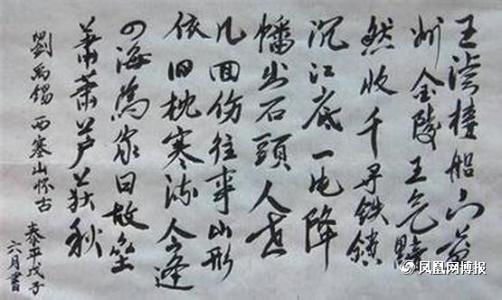 王濬楼船下益
州金陵王气黯
然收千寻铁鎖
沉江底一片降
幡出石頭人世
几回伤往事山形
依旧枕寒流今逢
四海為家日故垒
萧萧芦荻秋
劉禹锡 西塞山怀古 泰平戊子
六月書
凤凰网博报